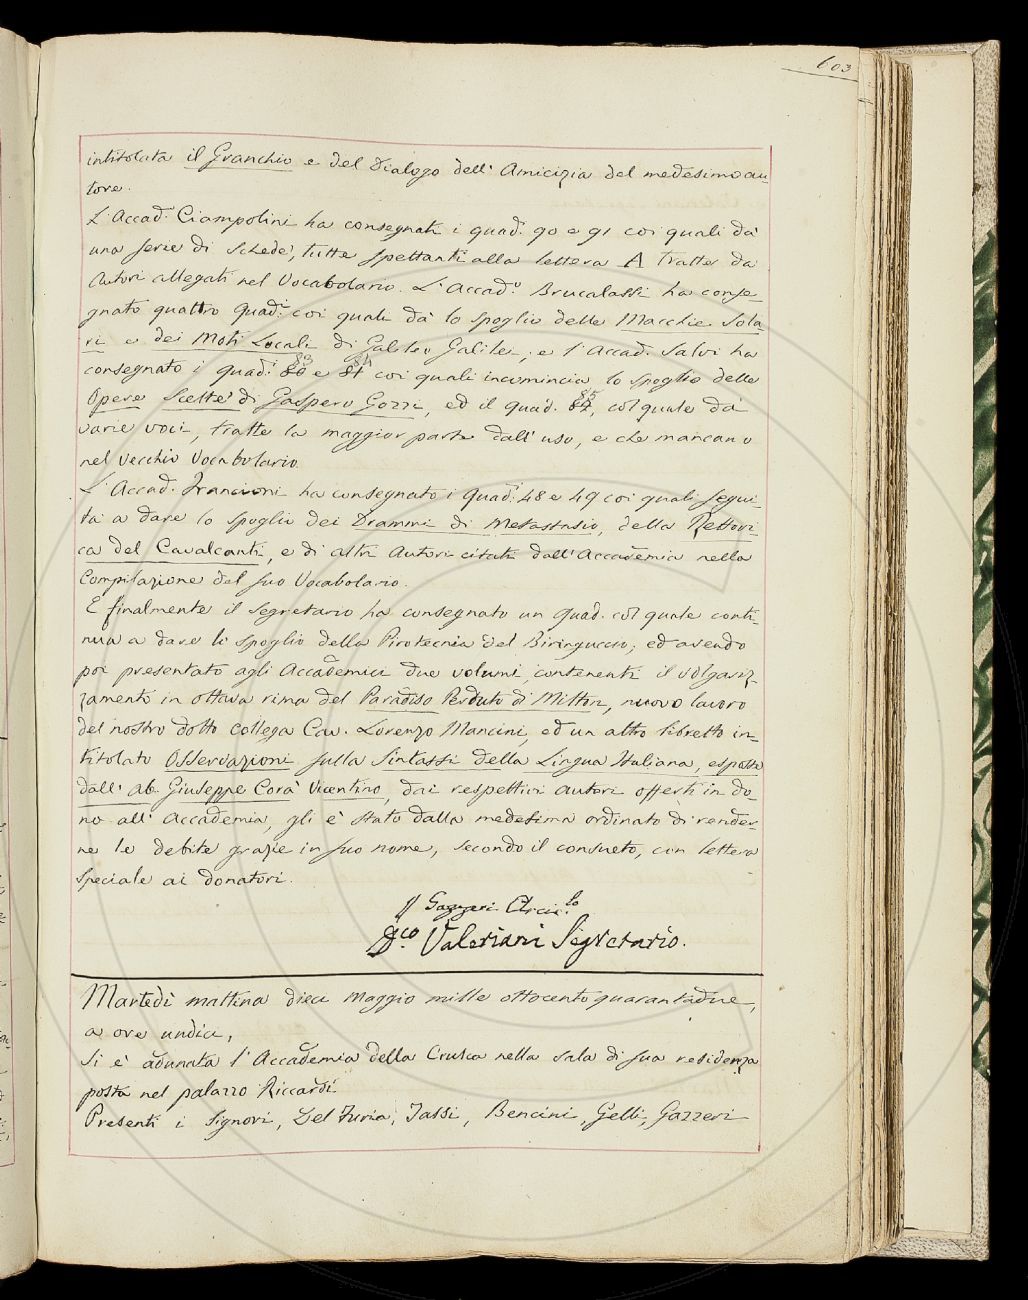 603
intitolata il Granchio e del Dialogo dell' Amicizia del medesimo au-
tore.
L'Accad. Ciampolini ha consegnati i quad. 90 e 91 coi quali dà
una serie di schede, tutte spettanti alla lettera A tratte da
Autori allegati nel Vocabolario. L'Accad.o Brucalassi ha conse-
gnato quattro Quad.i coi quali dà lo spoglio delle Macchie Sola
ri e dei Moti Locali di Galileo Galilei; e l'Accad. Salvi ha
83 84
consegnato i quad.i 80 e 81 coi quali incomincia lo spoglio delle
85
Opere Scelte di Gaspero Gozzi, ed il quad. 82, col quale dà
varie voci, tratte la maggior parte dall'uso, e che mancano
nel vecchio Vocabolario.
L'Accad. Francioni ha consegnato i Quad.i 48 e 49 coi quali segui-
ta a dare lo spoglio dei Drammi di Metastasio, della Rettori-
ca del Cavalcanti, e di altri Autori citati dall'Accademia nella
Compilazione del suo Vocabolario.
E finalmente il Segretario ha consegnato un quad. col quale conti-
nua a dare lo spoglio della Pirotecnia del Biringuccio; ed avendo
poi presentato agli Accademici due volumi, contenenti il volgariz-
zamento in ottava rima del Paradiso Perduto di Milton, nuovo lavoro
del nostro dotto collega Cav. Lorenzo Mancini, ed un altro libretto in-
titolato Osservazioni sulla Sintassi della Lingua Italiana, esposte
dall' ab. Giuseppe Corà Vicentino, dai respettivi autori offerti in do-
no all' Accademia, gli è stato dalla medesima ordinato di render-
ne le debite grazie in suo nome, secondo il consueto, con lettera
speciale ai donatori.
Gazzeri Arcic.lo
D.co Valeriani Segretario.
Martedì mattina dieci Maggio mille ottocento quarantadue,
a ore undici,
Si è adunata l'Accademia della Crusca nella sala di sua residenza
posta nel palazzo Riccardi
Presenti i Signori, Del Furia, Tassi, Bencini, Gelli, Gazzeri